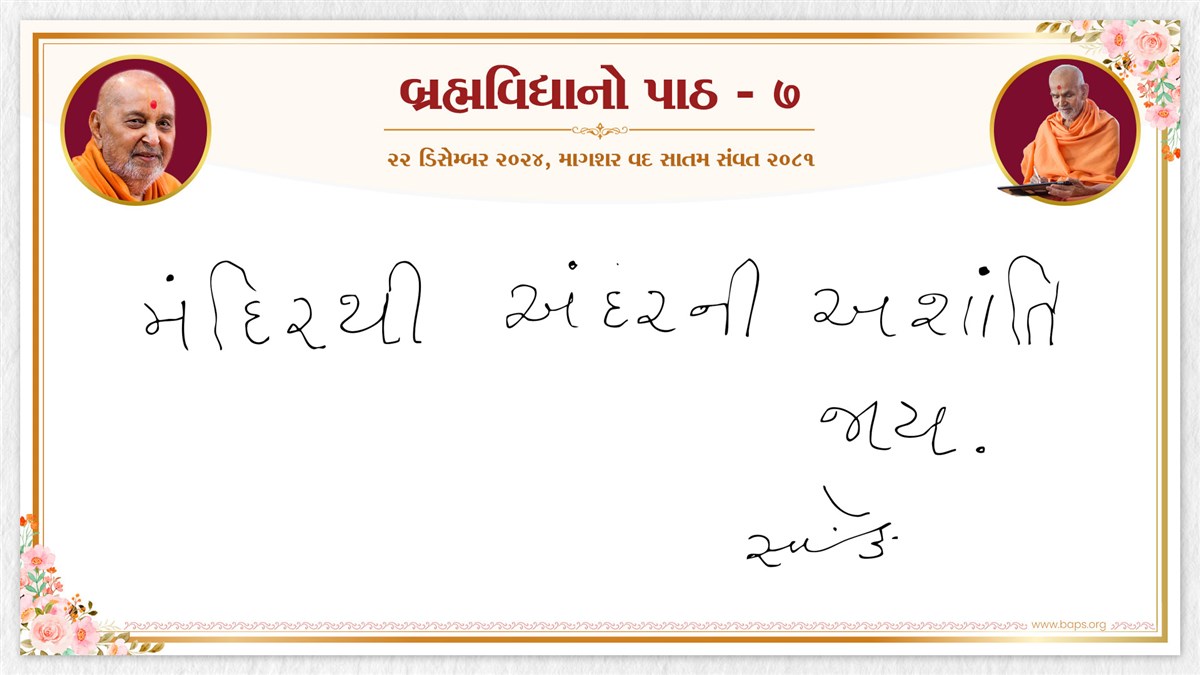 બ્રહ્મવિદ્યાનો પાઠ - ૭
૨૨ ડિસેમ્બર ૨૦૨૪, માગશર વદ સાતમ સંવત ૨૦૮૧
મંદિરથી અંદરની અશાંતિ
જાય.
www.baps.org